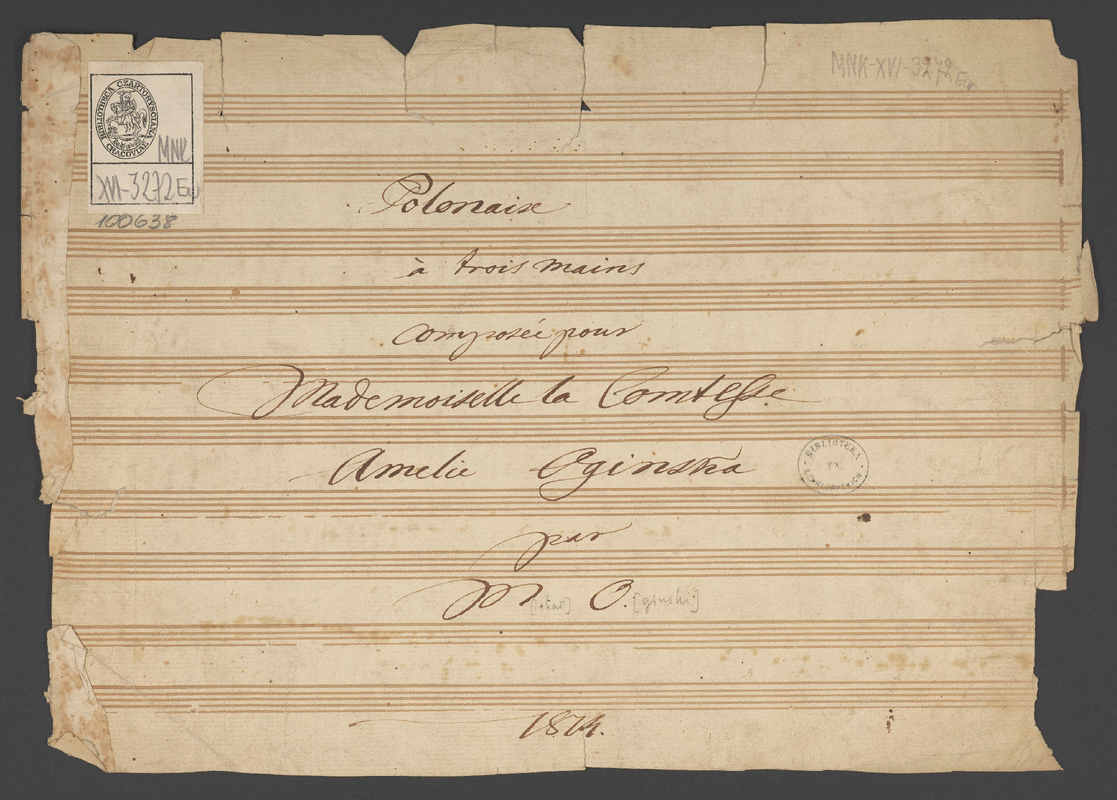 MNK-XVI-3272
BIBLIOTHECA CZARTORYSCIANA
CRACOVIAE
MNK
XVI-3272
100638
Polonaise
à trois mains
composée pour
Mademoiselle la Comtesse
Amelie Oginska
par
M O. [ginski]
BIBLIOTEKA